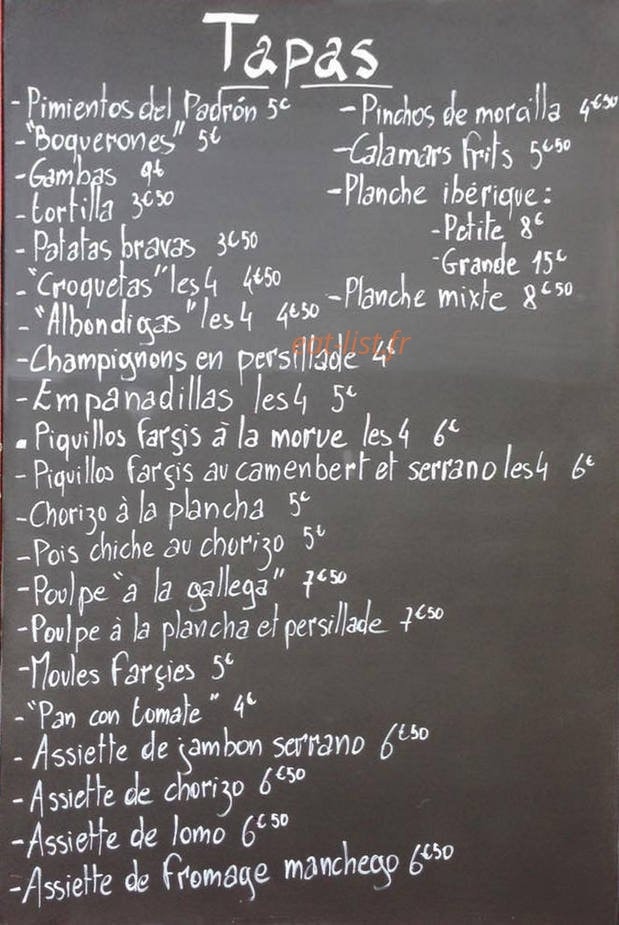 Tapas
- Pimientos del Padrón 5€
- "Boquerones" 5€
- Gambas 9€
- tortilla 3€50
- Patatas bravas 3€50
- "Croquetas" les 4 4€50
- "Albondigas" les 4 4€50
- Champignons en persillade 4€
- Empanadillas les 4 5€
- Piquillos farçis à la morue les 4 6€
- Piquillos farçis au camenbert et serrano les 4 6€
- Chorizo à la plancha 5€
- Pois chiche au chorizo 5€
- Poulpe "a la gallega" 7€50
- Poulpe à la plancha et persillade 7€50
- Moules farçies 5€
- "Pan con tomate" 4€
- Assiette de jambon serrano 6€50
- Assiette de chorizo 6€50
- Assiette de lomo 6€50
- Assiette de fromage manchego 6€50
- Pinchos de morcilla 4€50
- Calamars frits 5€50
- Planche ibérique :
- Petite 8€
- Grande 15€
- Planche mixte 8€50
eat-list.fr